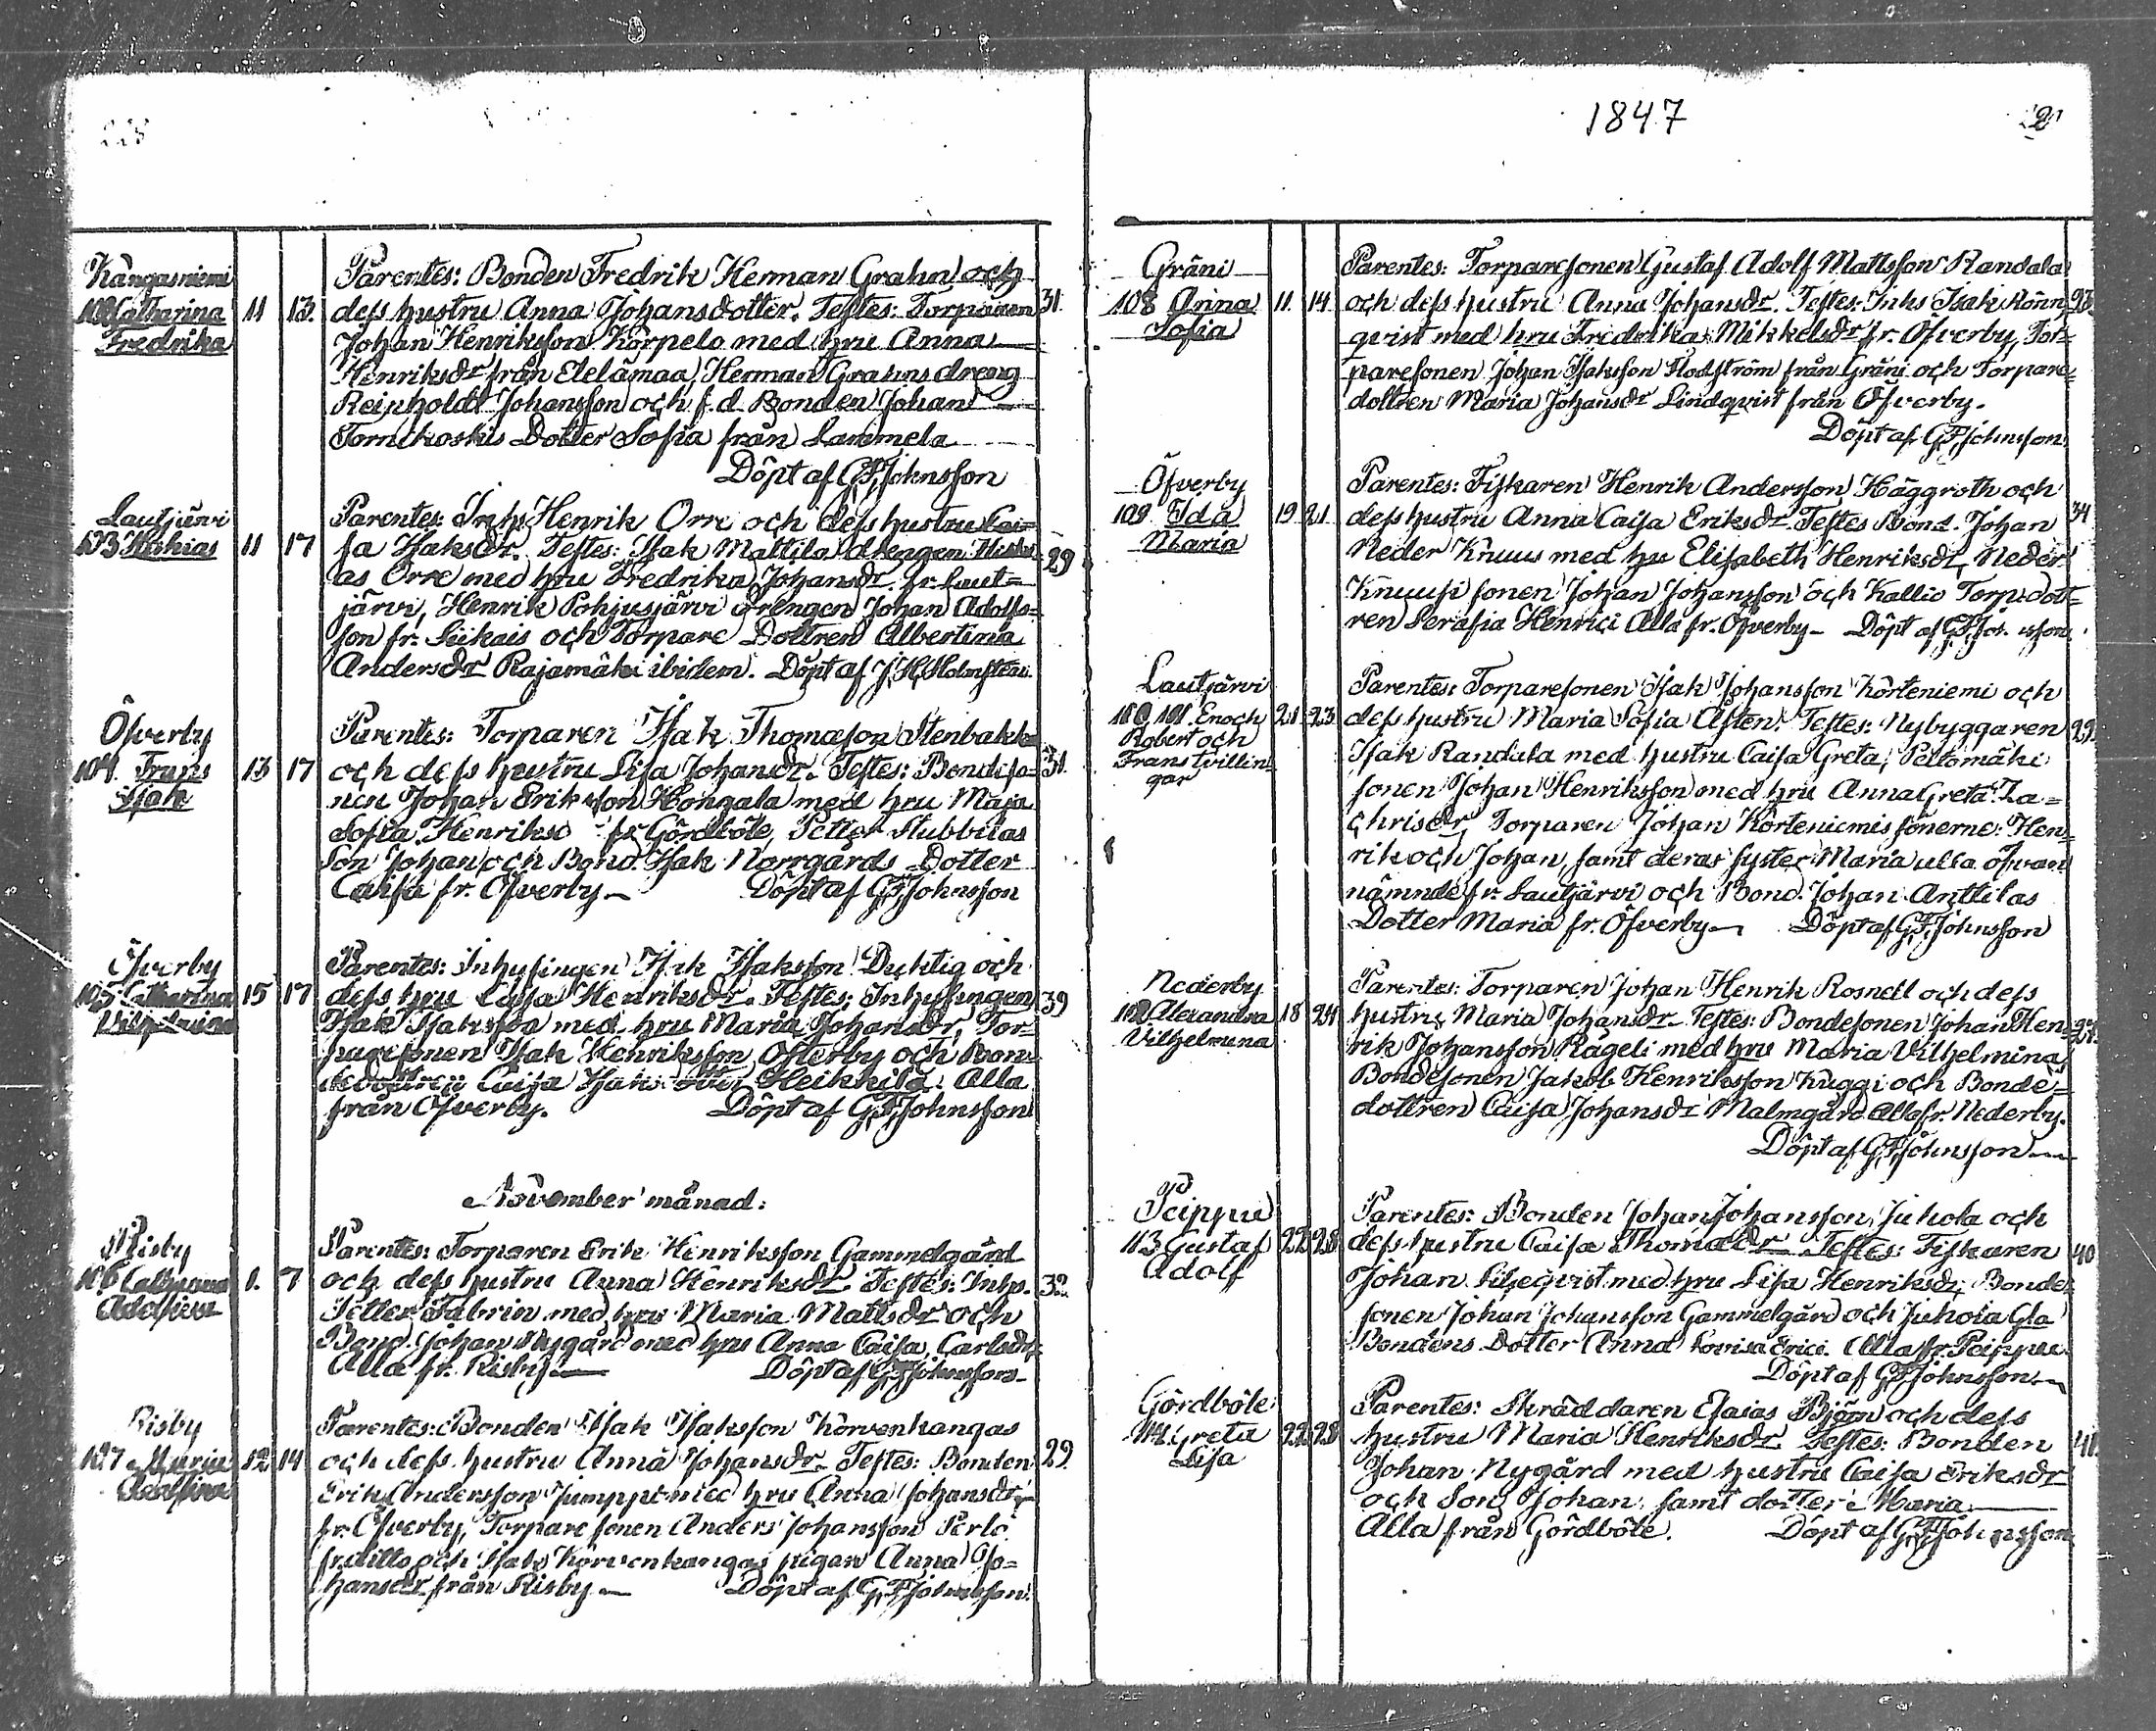 228
Kangasniemi
102 Catharina 11 13.
Fredrika
Parentes: Bonden Fredrik Herman Grahn och
dess hustru Anna Johansdotter. Testes: Torparen 31.
Johan Henriksson Korpelo med hru Anna
Henriksdr från Elelämaa, Herman Grahns dreng
Reinholdt Johansson och f.d. Bonden Johan
Tornikoskis Dotter Sofia från Lammela
Döpt af G.F. Johnsson
Lautjärvi
103 Hiskias 11 17
Parentes: Inhs Henrik Orre och dess hustru Cai-
sa Isaksdr. Testes: Isak Mattila drengen Hiski- 29
as Orre med hru Fredrika Johansdr. fr. Laut-
järvi, Henrik Pohjusjärvi drengen Johan Adolfs-
son fr. Siikais och Torpare Dottren Albertina
Andersdr Rajamäki ibidem. Döpt af J.H. Holmsten.
Öfverby
104. Frans 13 17
Isak
Parentes: Torparen Isak Thomæson Stenbakka
och dess hustru Lisa Johansdr. Testes: Bondeso- 31.
nen Johan Eriksson Hongala med hru Maja
Sofia Henriksd fr. Gördböle, Petter Stubbilas
Son Johan och Bond. Isak Norrgårds Dotter
Caisa fr. Öfverby. Döpt af G.F. Johnsson
Öfverby
105 Catharina 15 17
Vilhelmina
Parentes: Inhysingen Isak Isaksson Duktig och
dess hru Caisa Henriksdr. Testes: Inhysingen 39
Isak Isaksson med hru Maria Johansdr, Tor-
paresonen Isak Henriksson Österby och Bon-
dedottren Caisa Isaksdotter Heikkilä. Alla
från Öfverby. Döpt af G.F. Johnsson
November månad:
Risby
106 Catharina 1. 7
Adolfina
Parentes: Torparen Erik Henriksson Gammelgård
och dess hustru Anna Henriksdr. Testes: Inhs. 32.
Petter Fabrin med hru Maria Mattsdr och
Bond. Johan Nygård med hru Anna Caisa Carlsdr,
Alla fr. Risby. Döpt af G.F. Johnsson
Risby
107 Maria 12 14
Adolfina
Parentes: Bonden Isak Isaksson Korvenkangas
och dess hustru Anna Johansdr. Testes: Bonden 29.
Erik Andersson Jumppi med hru Anna Johansdr
fr. Öfverby, Torpare sonen Anders Johansson Perlo
fr. ditto och Isak Korvenkangas pigan Anna Jo-
hansdr från Risby. Döpt af G.F. Johnsson.
1847
Gräni
108 Anna 11. 14
Sofia
Parentes: Torparesonen Gustaf Adolf Mattsson Randala
och dess hustru Anna Johansdr. Testes: Inhs Isak Rönn- 23.
qvist med hru Fredrika Mikkelsdr fr. Öfverby, Tor-
paresonen Johan Isaksson Flodström från Gräni och Torpare-
dottren Maria Johansdr Lindqvist från Öfverby.
Döpt af G.F. Johnsson
Öfverby
109 Ida 19 21
Maria
Parentes: Fiskaren Henrik Andersson Häggroth och
dess hustru Anna Caisa Eriksdr. Testes Bond. Johan 34
Neder Knuus med hu Elisabeth Henriksdr, Neder
Knuusi sonen Johan Johansson och Kallio Torp.dott-
ren Serafia Henrici Alla fr. Öfverby. Döpt af G.F. Johnsson
Lautjärvi
110, 111. Enoch 21 23
Robert och
Frans tvillin-
gar
Parentes: Torparesonen Isak Johansson Körteniemi och
dess hustru Maria Sofia Åsten. Testes: Nybyggaren 29.
Isak Randala med hustru Caisa Greta, Peltomäki
sonen Johan Henriksson med hru Anna Greta Za-
chrisdr, Torparen Johan Körteniemis sönerne: Hen-
rik och Johan, samt deras syster Maria alla ofvan
nämnde fr. Lautjärvi och Bond. Johan Anttilas
Dotter Maria fr. Öfverby. Döpt af G.F. Johnsson
Nederby
112 Alexandra 18 24
Vilhelmina
Parentes: Torparen Johan Henrik Rosnell och dess
hustru Maria Johansdr. Testes: Bondesonen Johan Hen-
rik Johansson Rägeli med hru Maria Vilhelmina
Bondesonen Jakob Henriksson Kuggi och Bonde-
dottren Caisa Johansdr Malmgård Alla fr. Nederby.
Döpt af G.F. Johnsson
Peippu
113 Gustaf 22 28
Adolf
Parentes: Bonden Johan Johansson Juhola och
dess hustru Caisa Thomædr. Testes: Fiskaren 40
Johan Liljeqvist med hru Lisa Henriksdr, Bonde-
sonen Johan Johansson Gammelgård och Juhola Gla
Bondens Dotter Anna Lovisa Erici. Alla fr. Peippu.
Döpt af G.F. Johnsson
Gördböle
114. Greta 22 28
Lisa
Parentes: Skräddaren Esaias Björn och dess
hustru Maria Henriksdr. Testes: Bonden 41.
Johan Nygård med hustru Caisa Eriksdr
och Son Johan, samt dotter Maria
Alla från Gördböle. Döpt af G.F. Johnsson